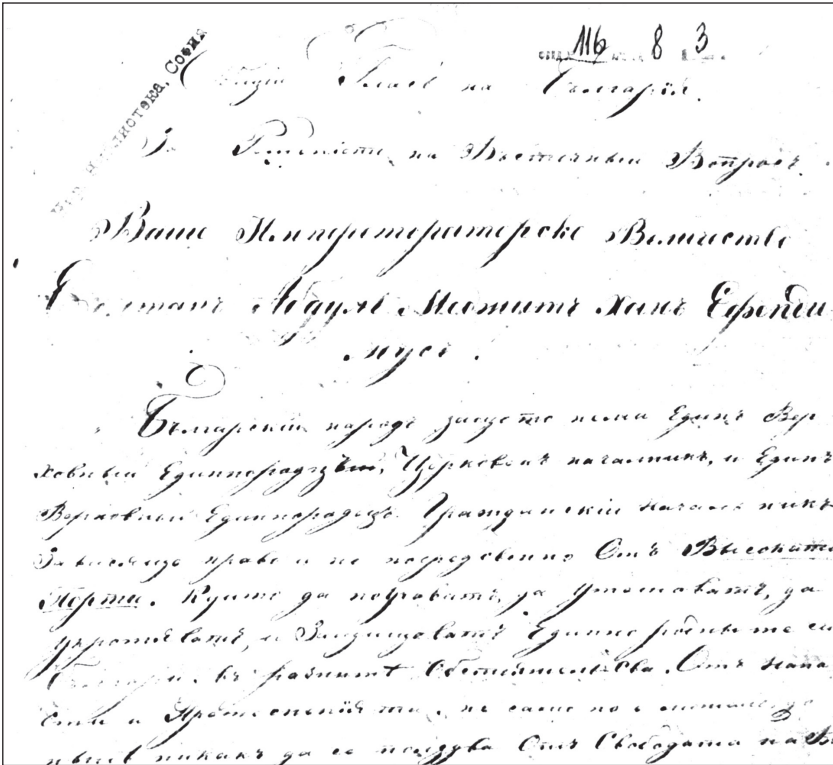 Нар. Библиотека, София
116 8 3
Общiй Гласъ на Българiя.
За Решенiети на Восточный Вопросъ.
Ваше Императераторске Величество
Султанъ Абдулъ Меджитъ Ханъ Ефенди
мусъ.
Българскiй народъ защото нема Единъ Вер
ховный Единнородцый, Церковенъ началникъ, и Единъ
Верховный Единнородецъ Гражданскiй началникъ
Зависяще право и не посредственно Отъ Высоката
Порти. Куито да поучаватъ, да утешаватъ, да
укротяватъ, и Защищаватъ Единнородните си
Българи, въ разнит обстоятелства. Отъ напа
сти и Притесненiята, не само но и
ныне никакъ да се ползува Отъ Свободата на